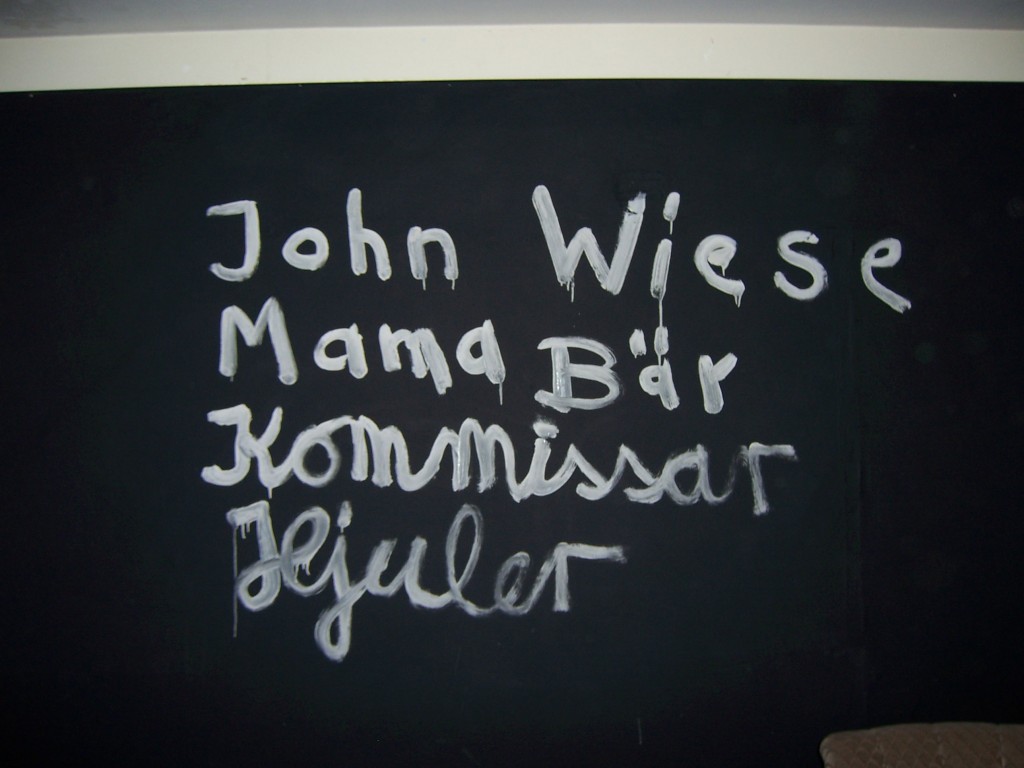 John Wiese
Mama Bär
Kommissar
Hjuler